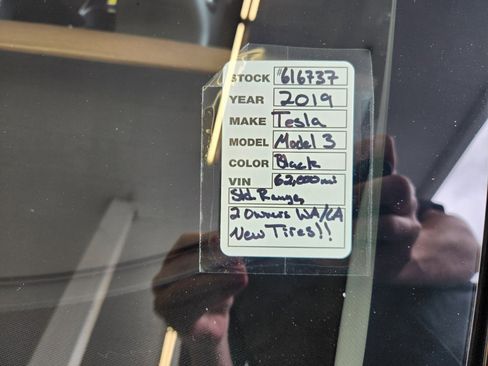 STOCK #616737
YEAR 2019
MAKE Tesla
MODEL Model 3
COLOR Black
VIN 62,000 mi
Std. Range,
2 Owners WA/CA
New Tires!!